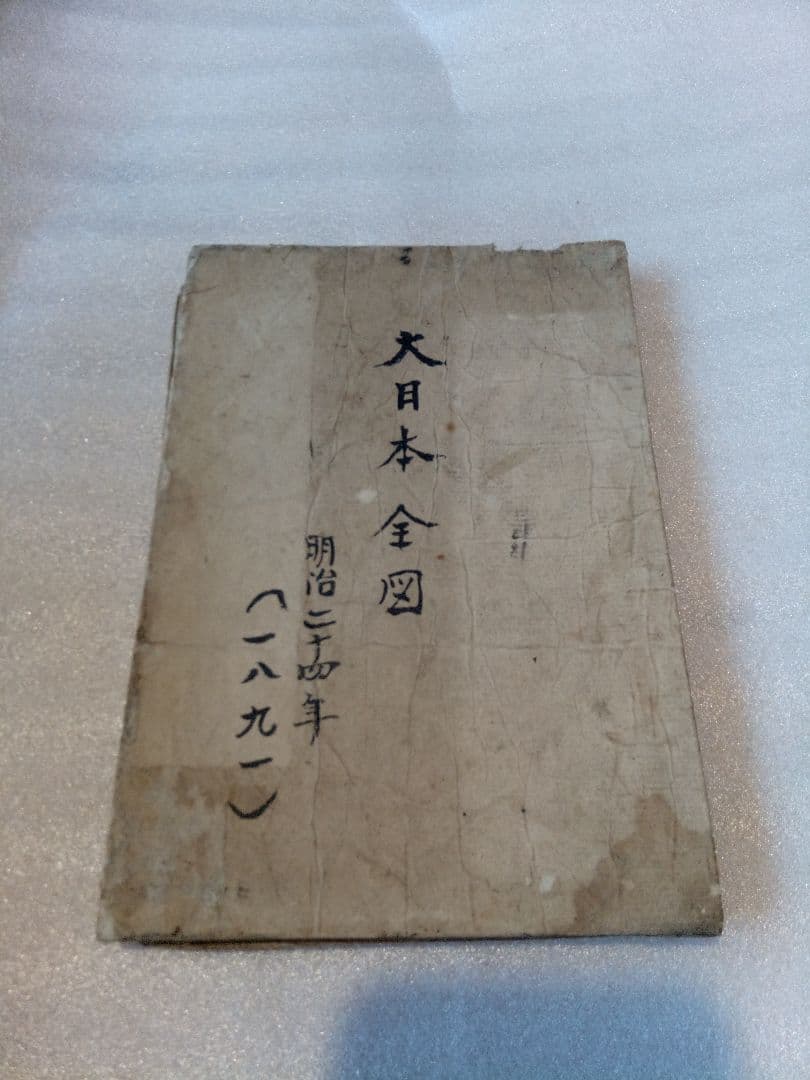 大日本全図
明治二十四年
(一八九一)